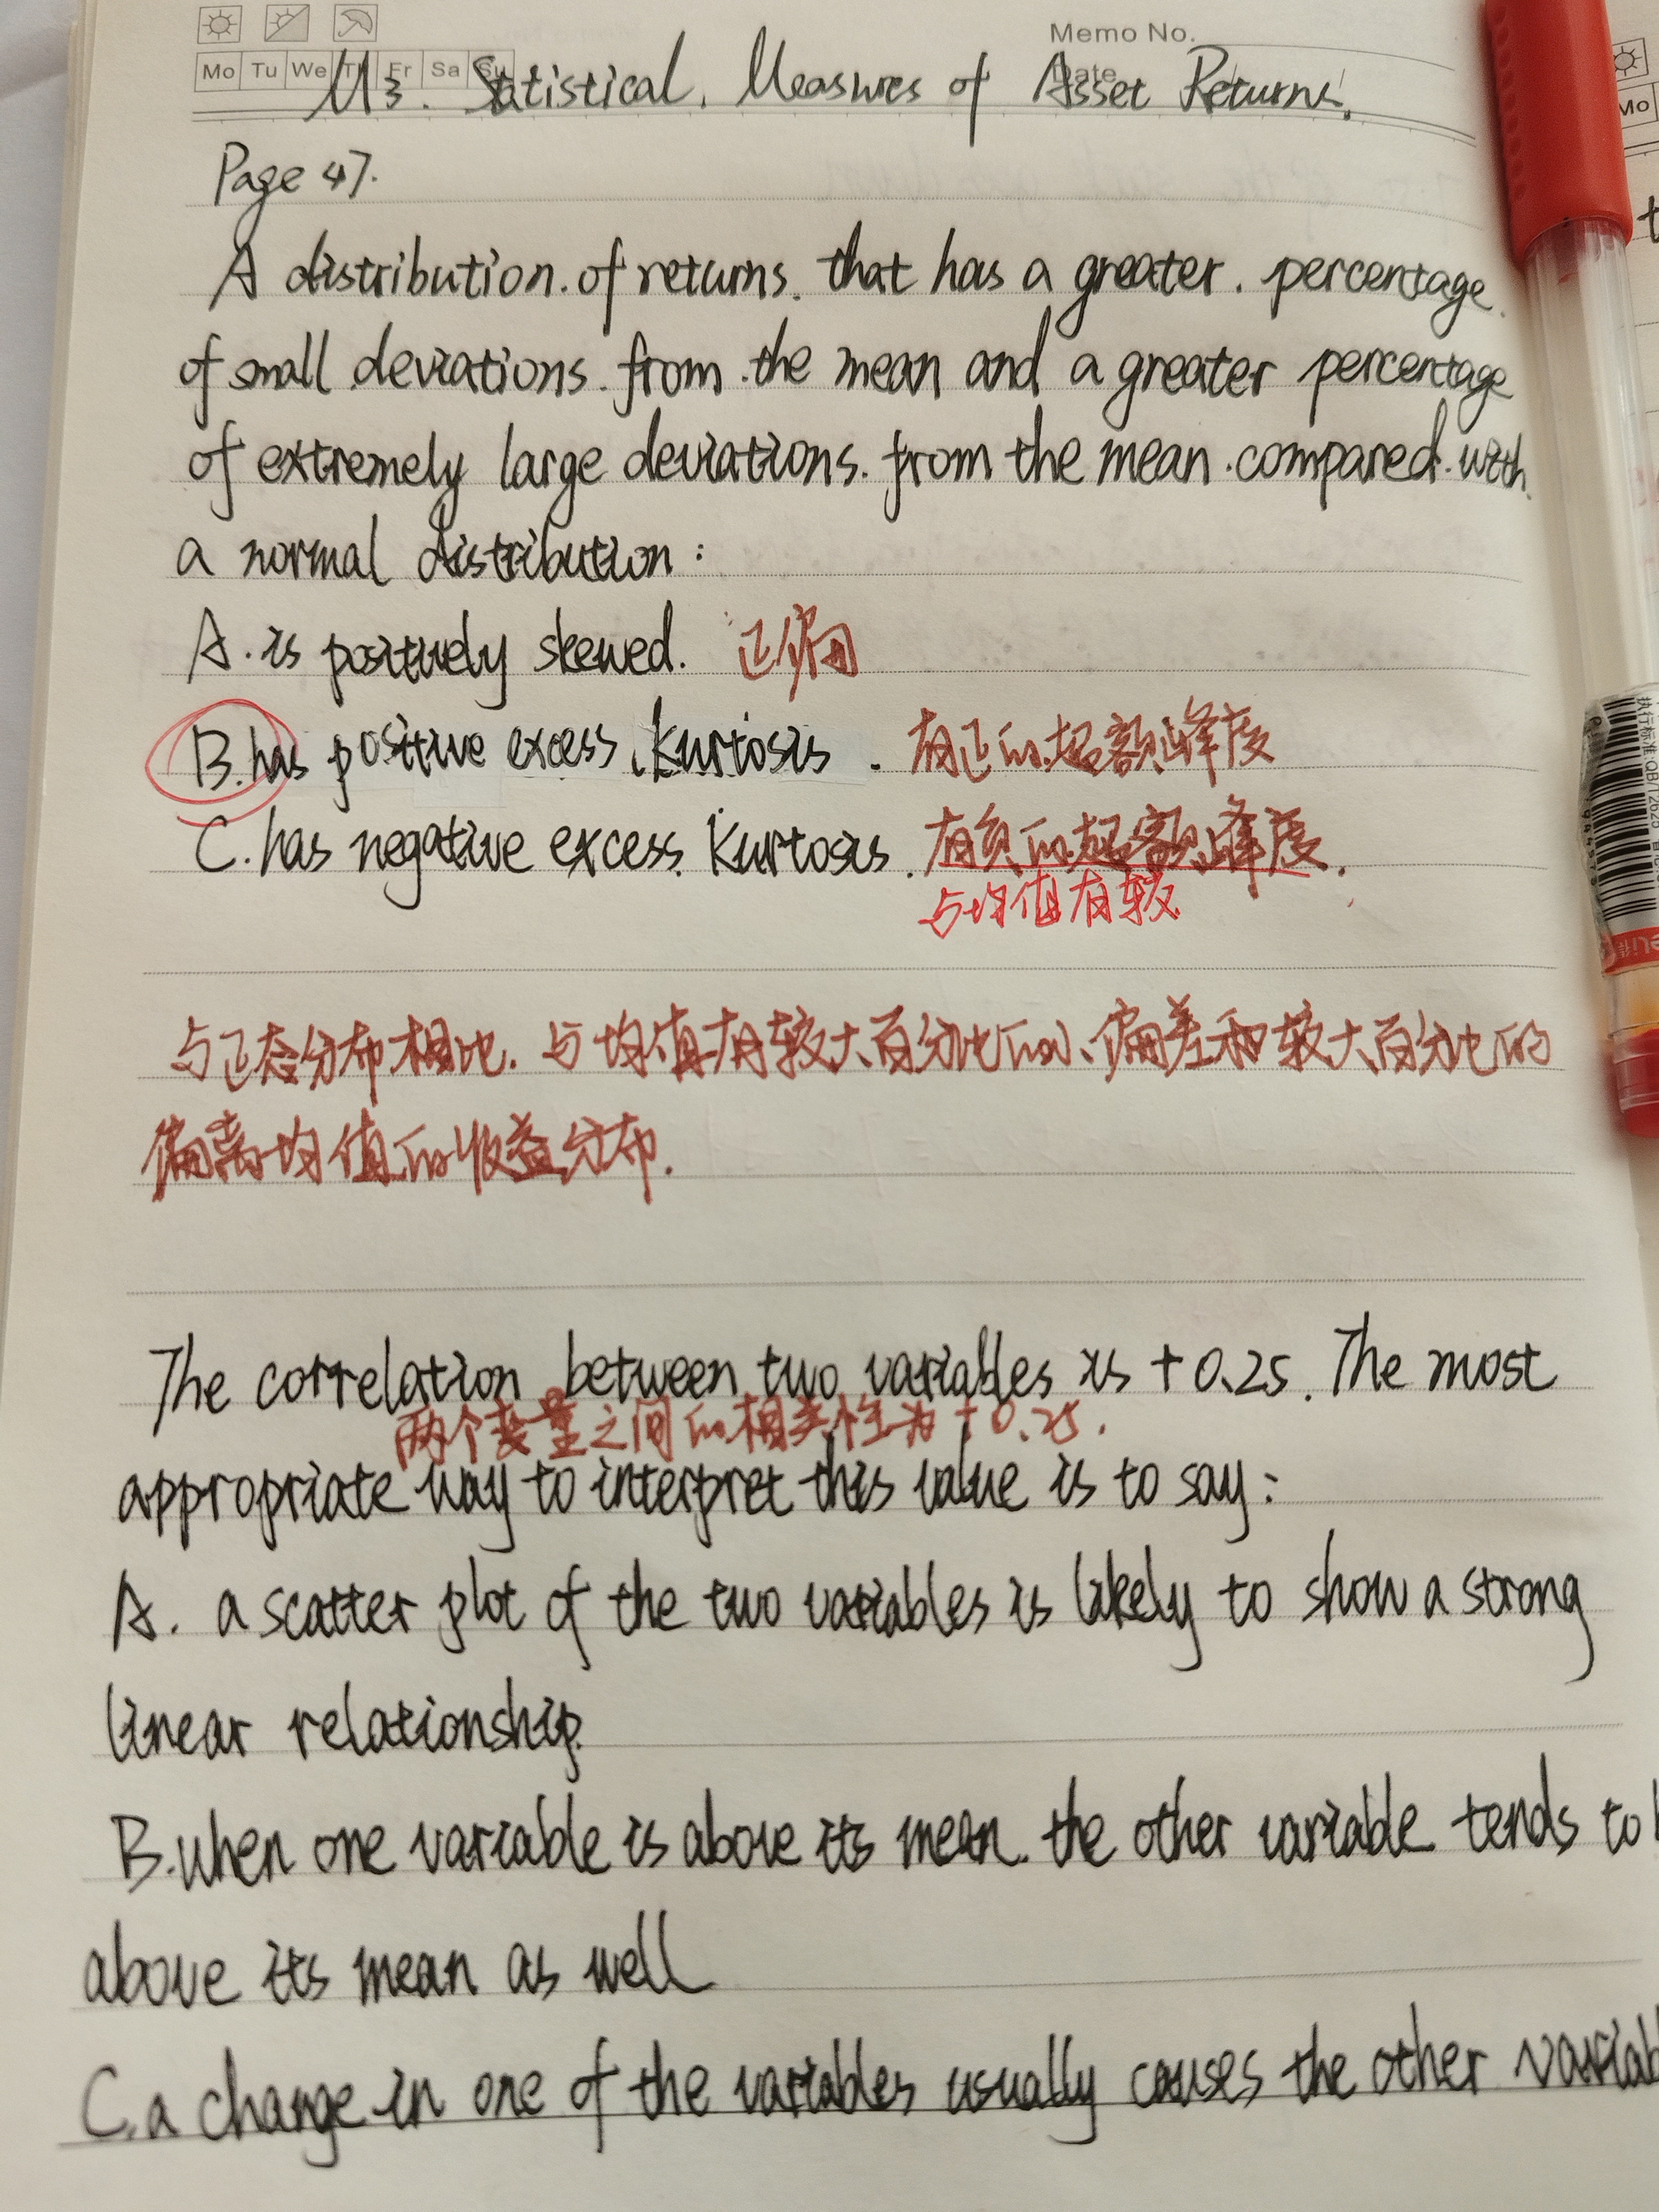 Memo No.
Mo Tu We Th Fr Sa Su
Date
M3. Statistical Measures of Asset Returns.
Page 47.
A distribution of returns that has a greater percentage
of small deviations from the mean and a greater percentage
of extremely large deviations from the mean compared with
a normal distribution:
A. is positively skewed. 正偏
B. has positive excess kurtosis. 有正的超额峰度
C. has negative excess kurtosis. 有负的超额峰度.
与均值有较
与正态分布相比. 与均值有较大百分比的小偏差和较大百分比的
偏离均值的收益分布.
The correlation between two variables is +0.25. The most
两个变量之间的相关性为+0.25.
appropriate way to interpret this value is to say:
A. a scatter plot of the two variables is likely to show a strong
linear relationship.
B. when one variable is above its mean. the other variable tends to
above its mean as well
C. a change in one of the variables usually causes the other variab
Mo
执行标准:QB/T2625